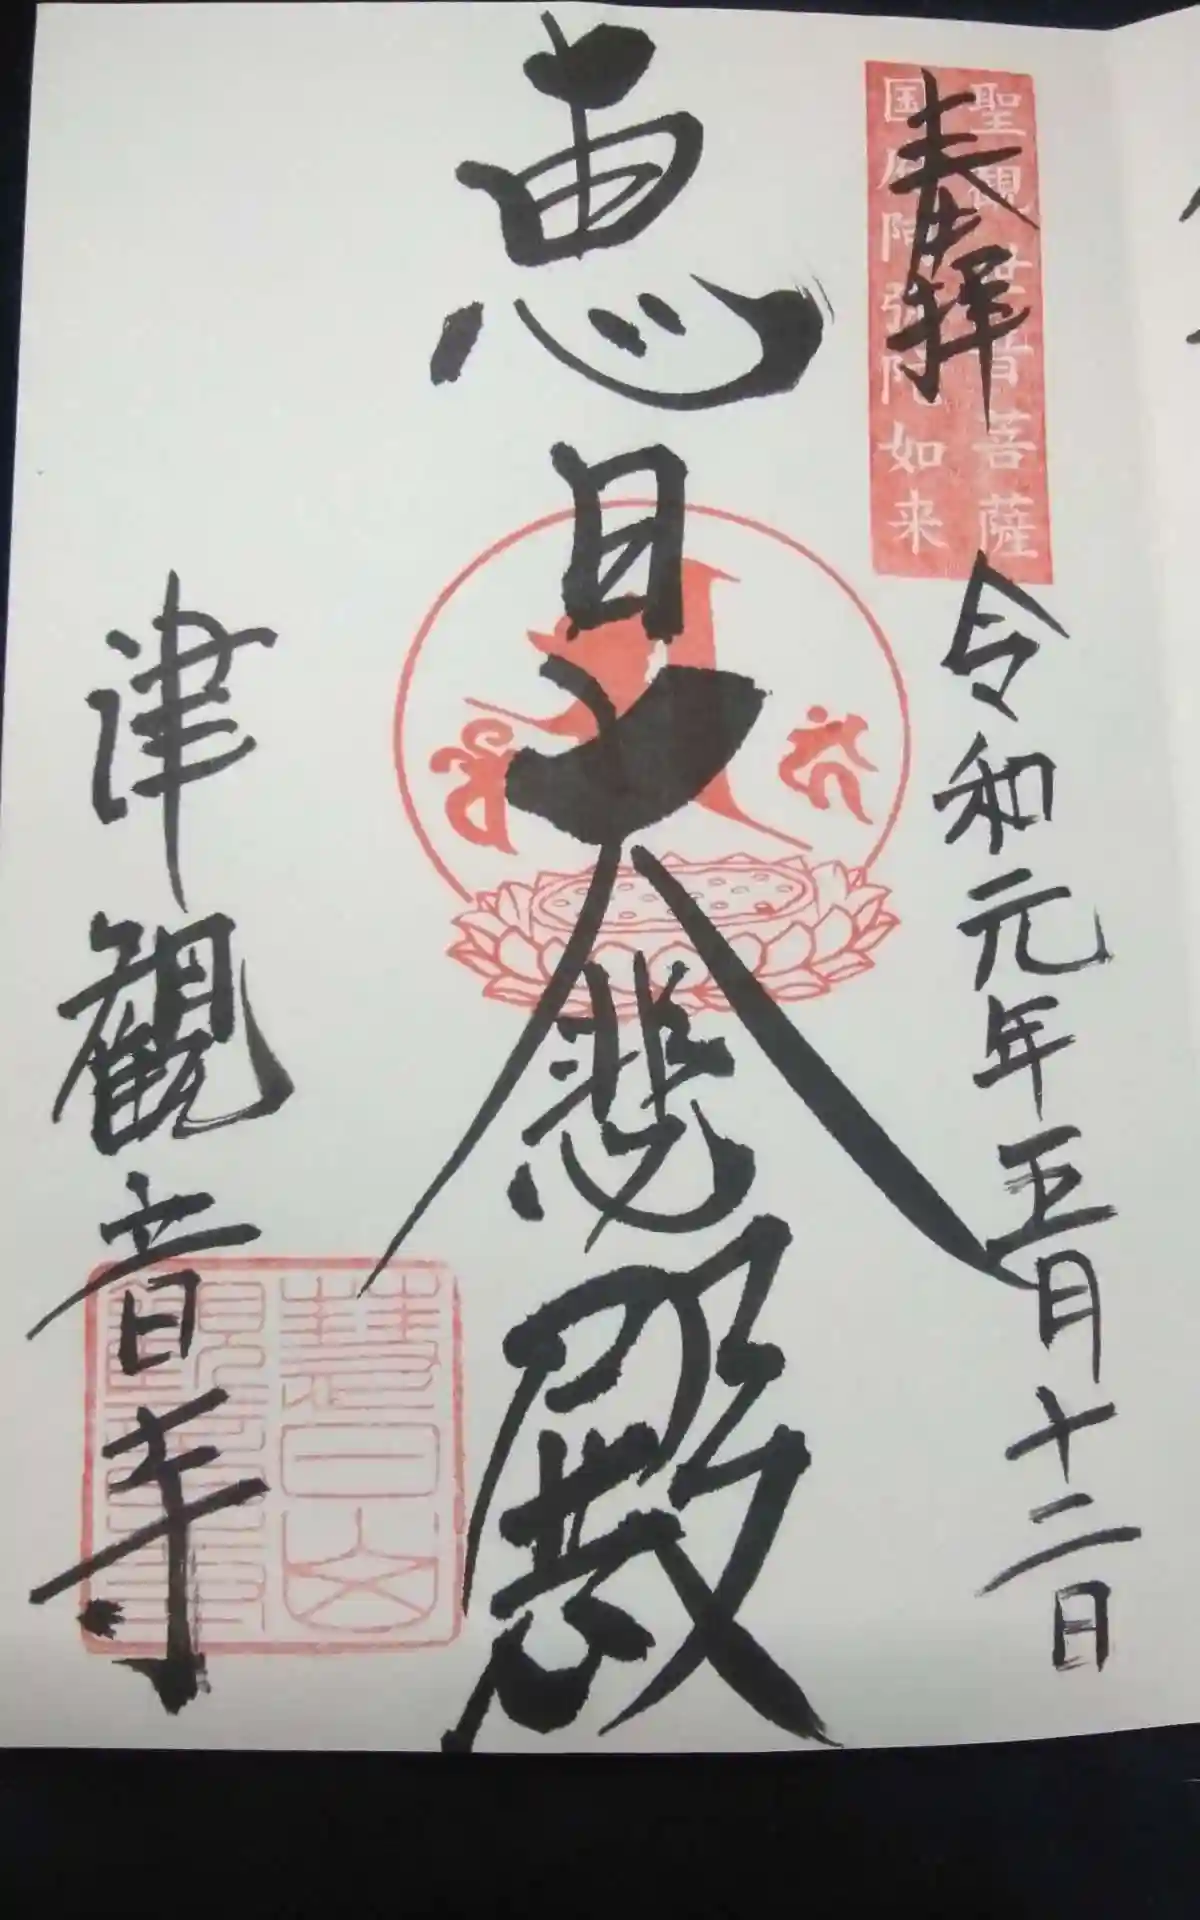 奉拝
聖観世音菩薩
国府阿弥陀如来
令和元年五月十二日
恵日大悲殿
津観音寺
慧日山
観音寺